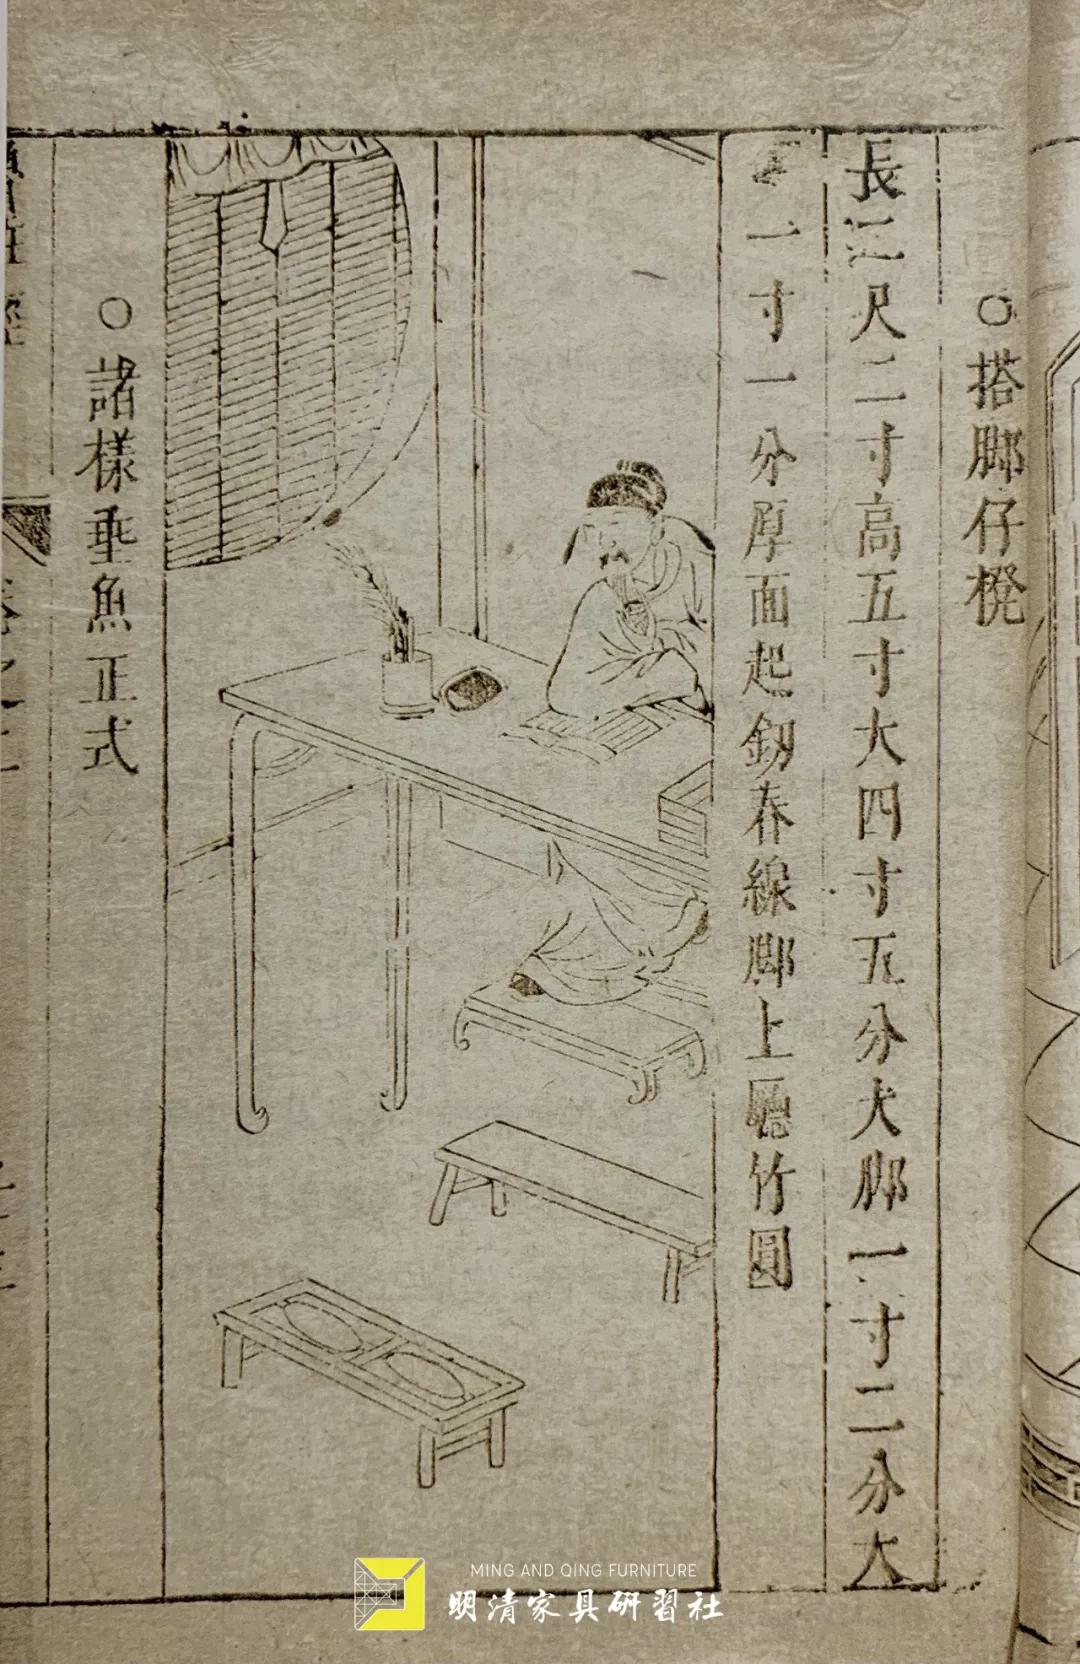 ○搭脚仔櫈
長二尺二寸高五寸大四寸五分大脚一寸二分大
一寸一分厚面起釰春線脚上廳竹圓
○諸樣垂魚正式
MING AND QING FURNITURE
明清家具研習社